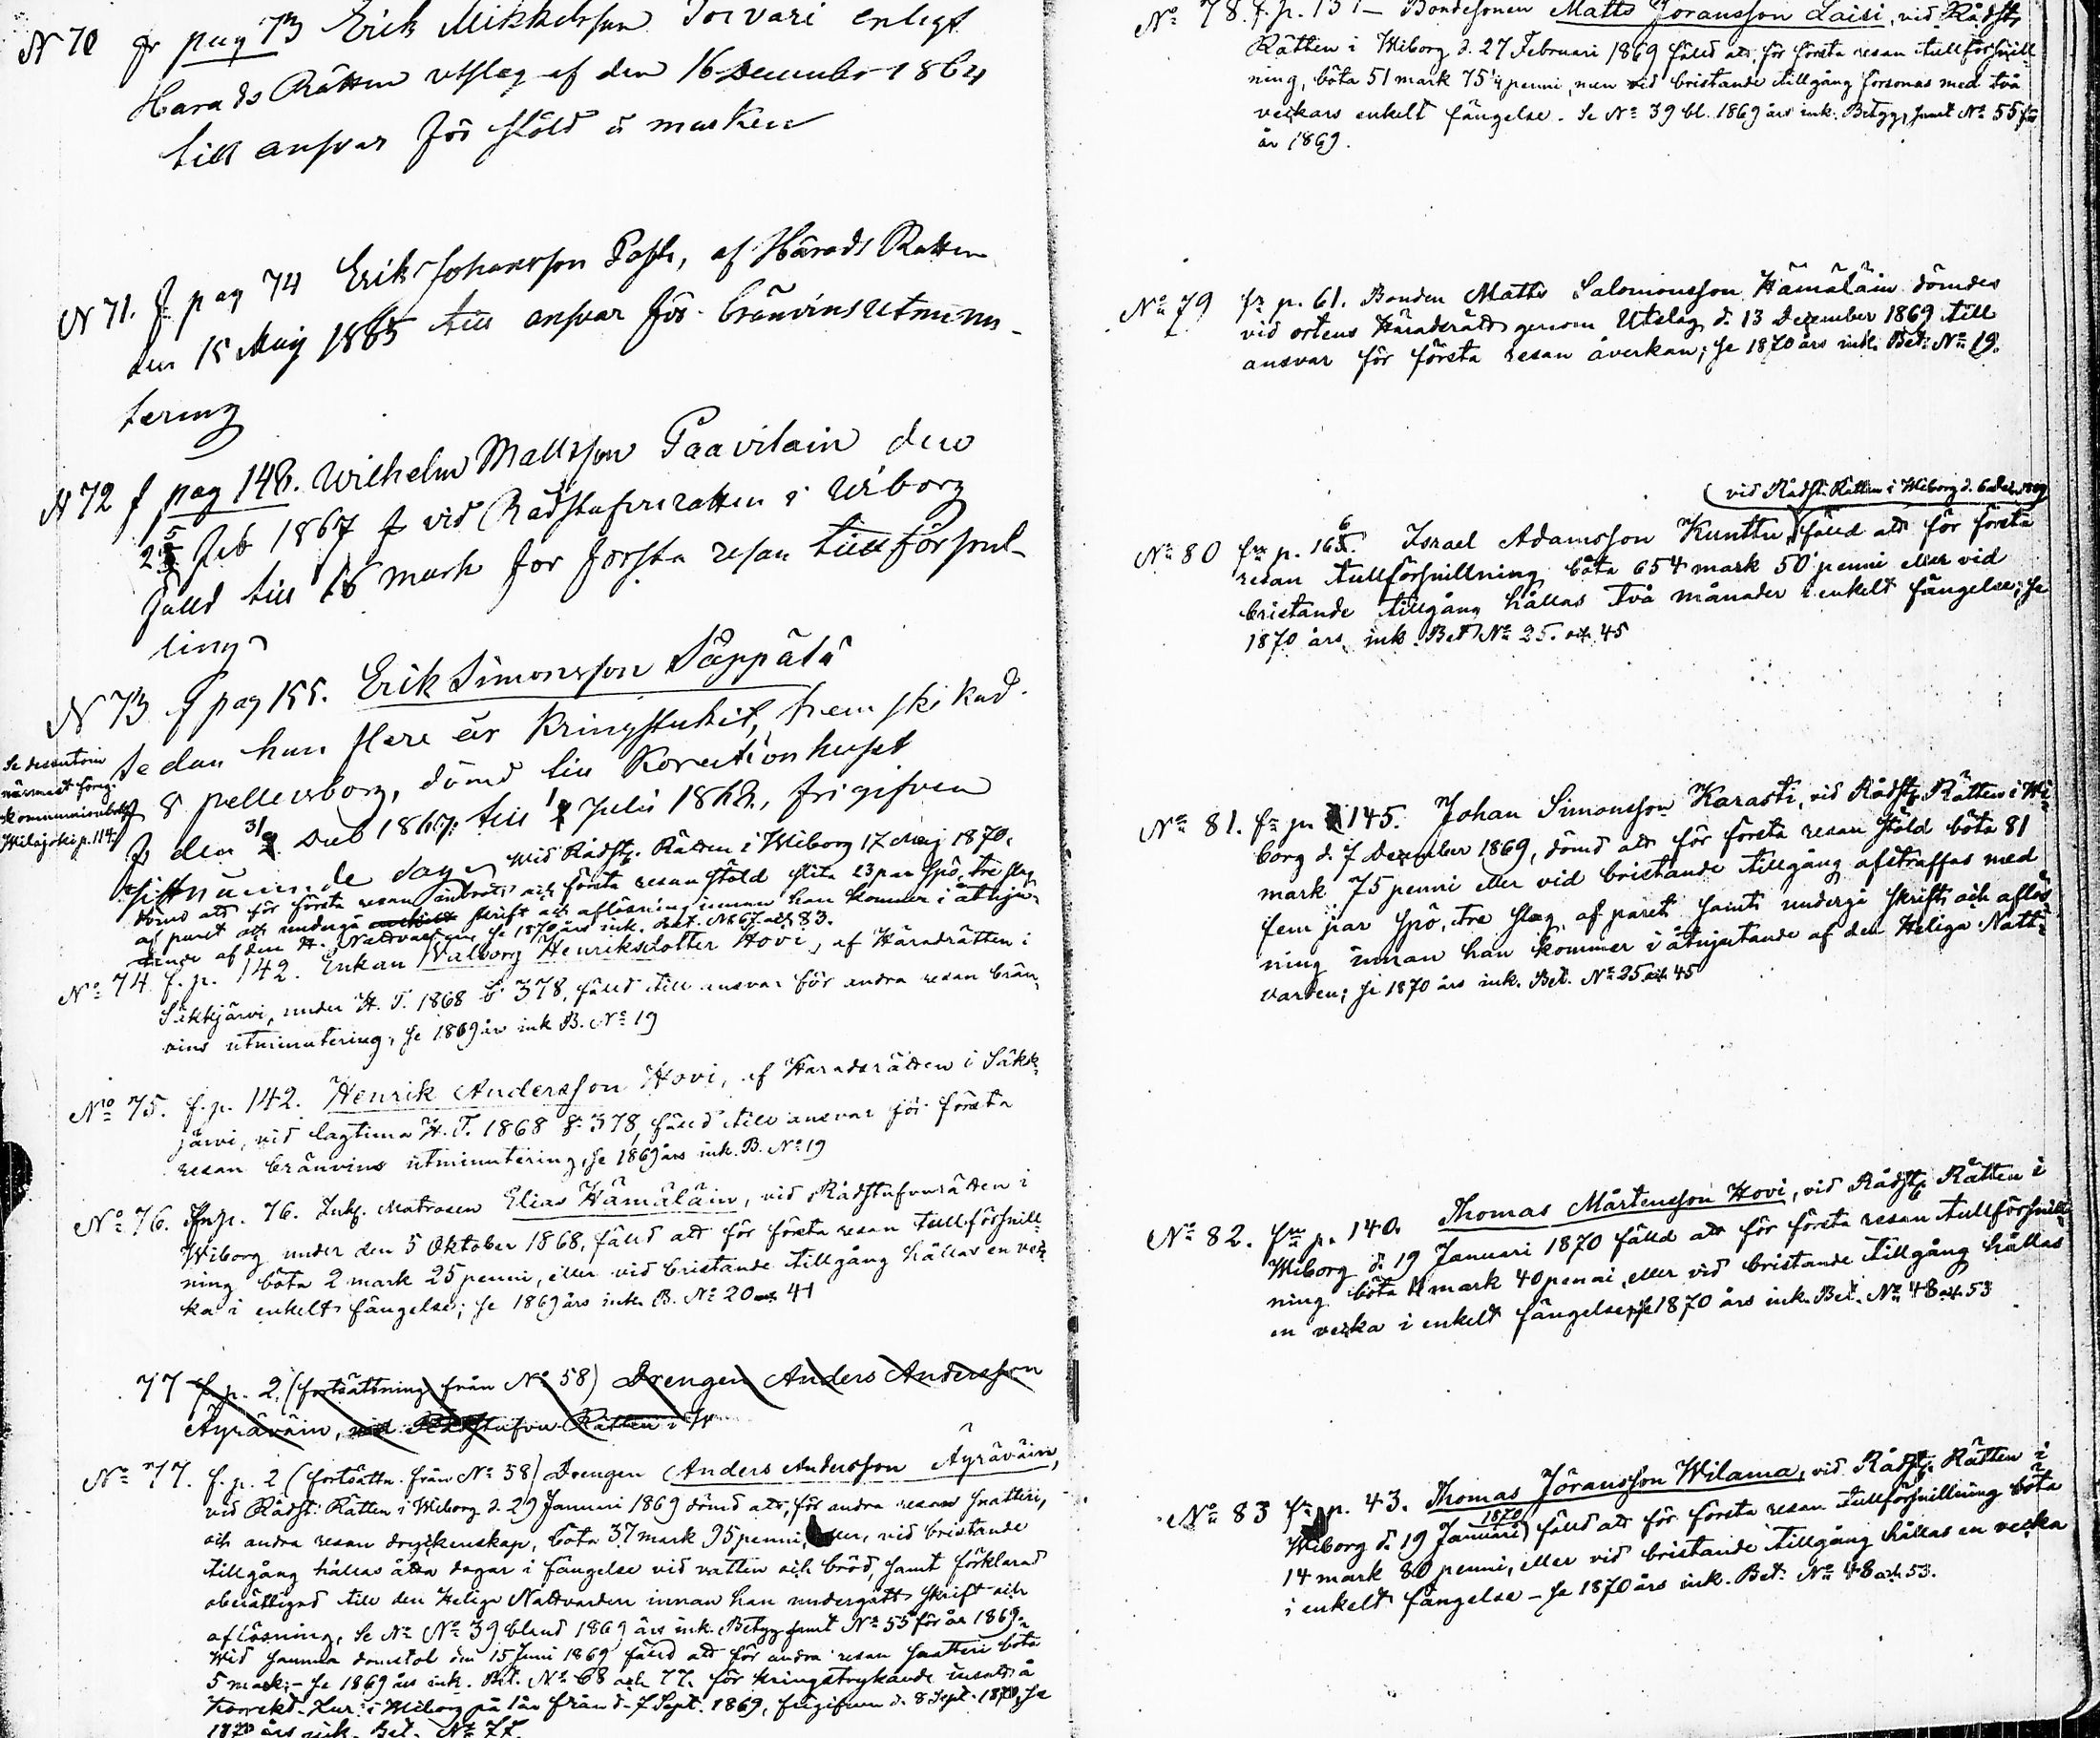 N 70 fr pag 73 Erik Mikkelsson Toivari enligt
Harads Rätten utslag af den 16 December 1864
till ansvar för stöld å marken
N 71. f pag 74 Erik Johansson, af Härads Rätten
den 15 Maij 1865 till ansvar för bränvins utminu-
tering
N 72 f pag 148. Wilhelm Mattsson Paavilain den
25 Feb 1867 vid Rådstufvurätten i Wiborg
fälld till 16 mark för första resan tullförsnil-
ling
N 73 f pag 155. Erik Simonsson Säppälä
sedan han flere år kringstrukit,
Se dessutom
närmast föreg.
kommunionbok
p. 114
Spellersborg, dömd till Korrektionhuset
den 31 Dec 1867 till 1 Julii 1868, frigifven
sistnämnde dag. Wid Rådst. Rätten i Wiborg 17 Maj 1870,
dömd att för första resan inbrott och första resan stöld slita 23 par spö, tre slag
af paret och undergå skrift och aflösning innan han kommer i åtnju-
tande af den H. Nattvarden, se 1870 års ink. Bet. No 67 och 83.
No 74 f. p. 142. Enkan Walborg Henriksdotter Hovi, af Häradsrätten i
Säkkjärvi, under H. T. 1868 § 378, fälld till ansvar för andra resan brän-
vins utminutering, se 1869 års ink B. No 19
No 75. f. p. 142. Henrik Andersson Hovi, af Häradsrätten i Säkk-
järvi, vid lagtima H. T. 1868 § 378, fälld till ansvar för första
resan bränvins utminutering, se 1869 års ink. B. No 19
No 76. Fr. p. 76. Matrosen Elias Hämäläin, vid Rådstufvurätten i
Wiborg under den 5 Oktober 1868, fälld att för första resan tullförsnill-
ning böta 2 mark 25 penni, eller vid bristande tillgång hållas en vec-
ka i enkelt fängelse; se 1869 års ink. B. No 20 och 41
77 f. p. 2. (fortsättning från No 58) Drengen Anders Andersson
Äyräväin, vid Rådstufvu Rätten i W
No 77. f. p. 2 (fortsättn. från No 58) Drengen Anders Andersson Äyräväin,
vid Rådst: Rätten i Wiborg d. 29 Januari 1869 dömd att, för andra resan snatteri,
och andra resan dryckenskap, böta 37 mark 95 penni, eller, vid bristande
tillgång hållas åtta dagar i fängelse vid vatten och bröd, samt förklarad
oberättigad till den Heliga Nattvarden innan han undergått skrift och
aflösning, Se No No 39 bland 1869 års ink. Betyg samt No 55 för år 1869.
Wid samma domstol den 15 Juni 1869 fälld att för andra resan snatteri böta
5 mark; - Se 1869 års ink. Bet. No 68 och 77. för kringstrykande insatt å
Korrekt. Hus. i Wiborg på 1 år från d. 7 Sept. 1869, frigifven d. 8 Sept. 1870, se
1870 års ink. Bet. No 77.
No 78. f. p. 151 - Bondesonen Matts Jöransson Laisi, vid Rådst.
Rätten i Wiborg d. 27 Februari 1869 fälld att för första resan tullförsnill-
ning, böta 51 mark 75 1/4 penni, men vid bristande tillgång försonas med två
veckors enkelt fängelse. Se No 39 bl. 1869 års ink. Betyg, samt No 55 för
år 1869.
No 79 fr p. 61. Bonden Matts Salomonsson Hämäläin dömdes
vid ortens Häradsrätt genom Utslag d. 13 December 1869 till
ansvar för första resan åverkan; se 1870 års ink. Bet. No 19.
(vid Rådst. Rätten i Wiborg d. 6
No 80 fr p. 166. Israel Adamsson Kunttu, fälld att för första
resan tullförsnillning böta 654 mark 50 penni eller vid
bristande tillgång hållas två månader i enkelt fängelse; se
1870 års ink. Bet No 25. och 45
No 81. fr p. 145. Johan Simonsson Karasti, vid Rådst. Rätten i Wi-
borg d. 7 December 1869, dömd att för första resan stöld böta 81
mark 75 penni eller vid bristande tillgång afstraffas med
fem par spö, tre slag af paret samt undergå skrift och aflös-
ning innan han kommer i åtnjutande af den Heliga Natt-
varden; se 1870 års ink. Bet. No 25 och 45
No 82. fr p. 140. Thomas Mårtensson Hovi, vid Rådst. Rätten i
Wiborg d. 19 Januari 1870 fälld att för första resan tullförsnill-
ning böta 4 mark 40 penni, eller vid bristande tillgång hållas
en vecka i enkelt fängelse, se 1870 års ink. Bet. No 48 och 53
No 83 fr p. 43. Thomas Jöransson Wilama, vid Rådst. Rätten i
Wiborg d. 19 Januari 1870 fälld att för första resan tullförsnillning böta
14 mark 80 penni, eller vid bristande tillgång hållas en vecka
i enkelt fängelse - se 1870 års ink. Bet. No 48 och 53.